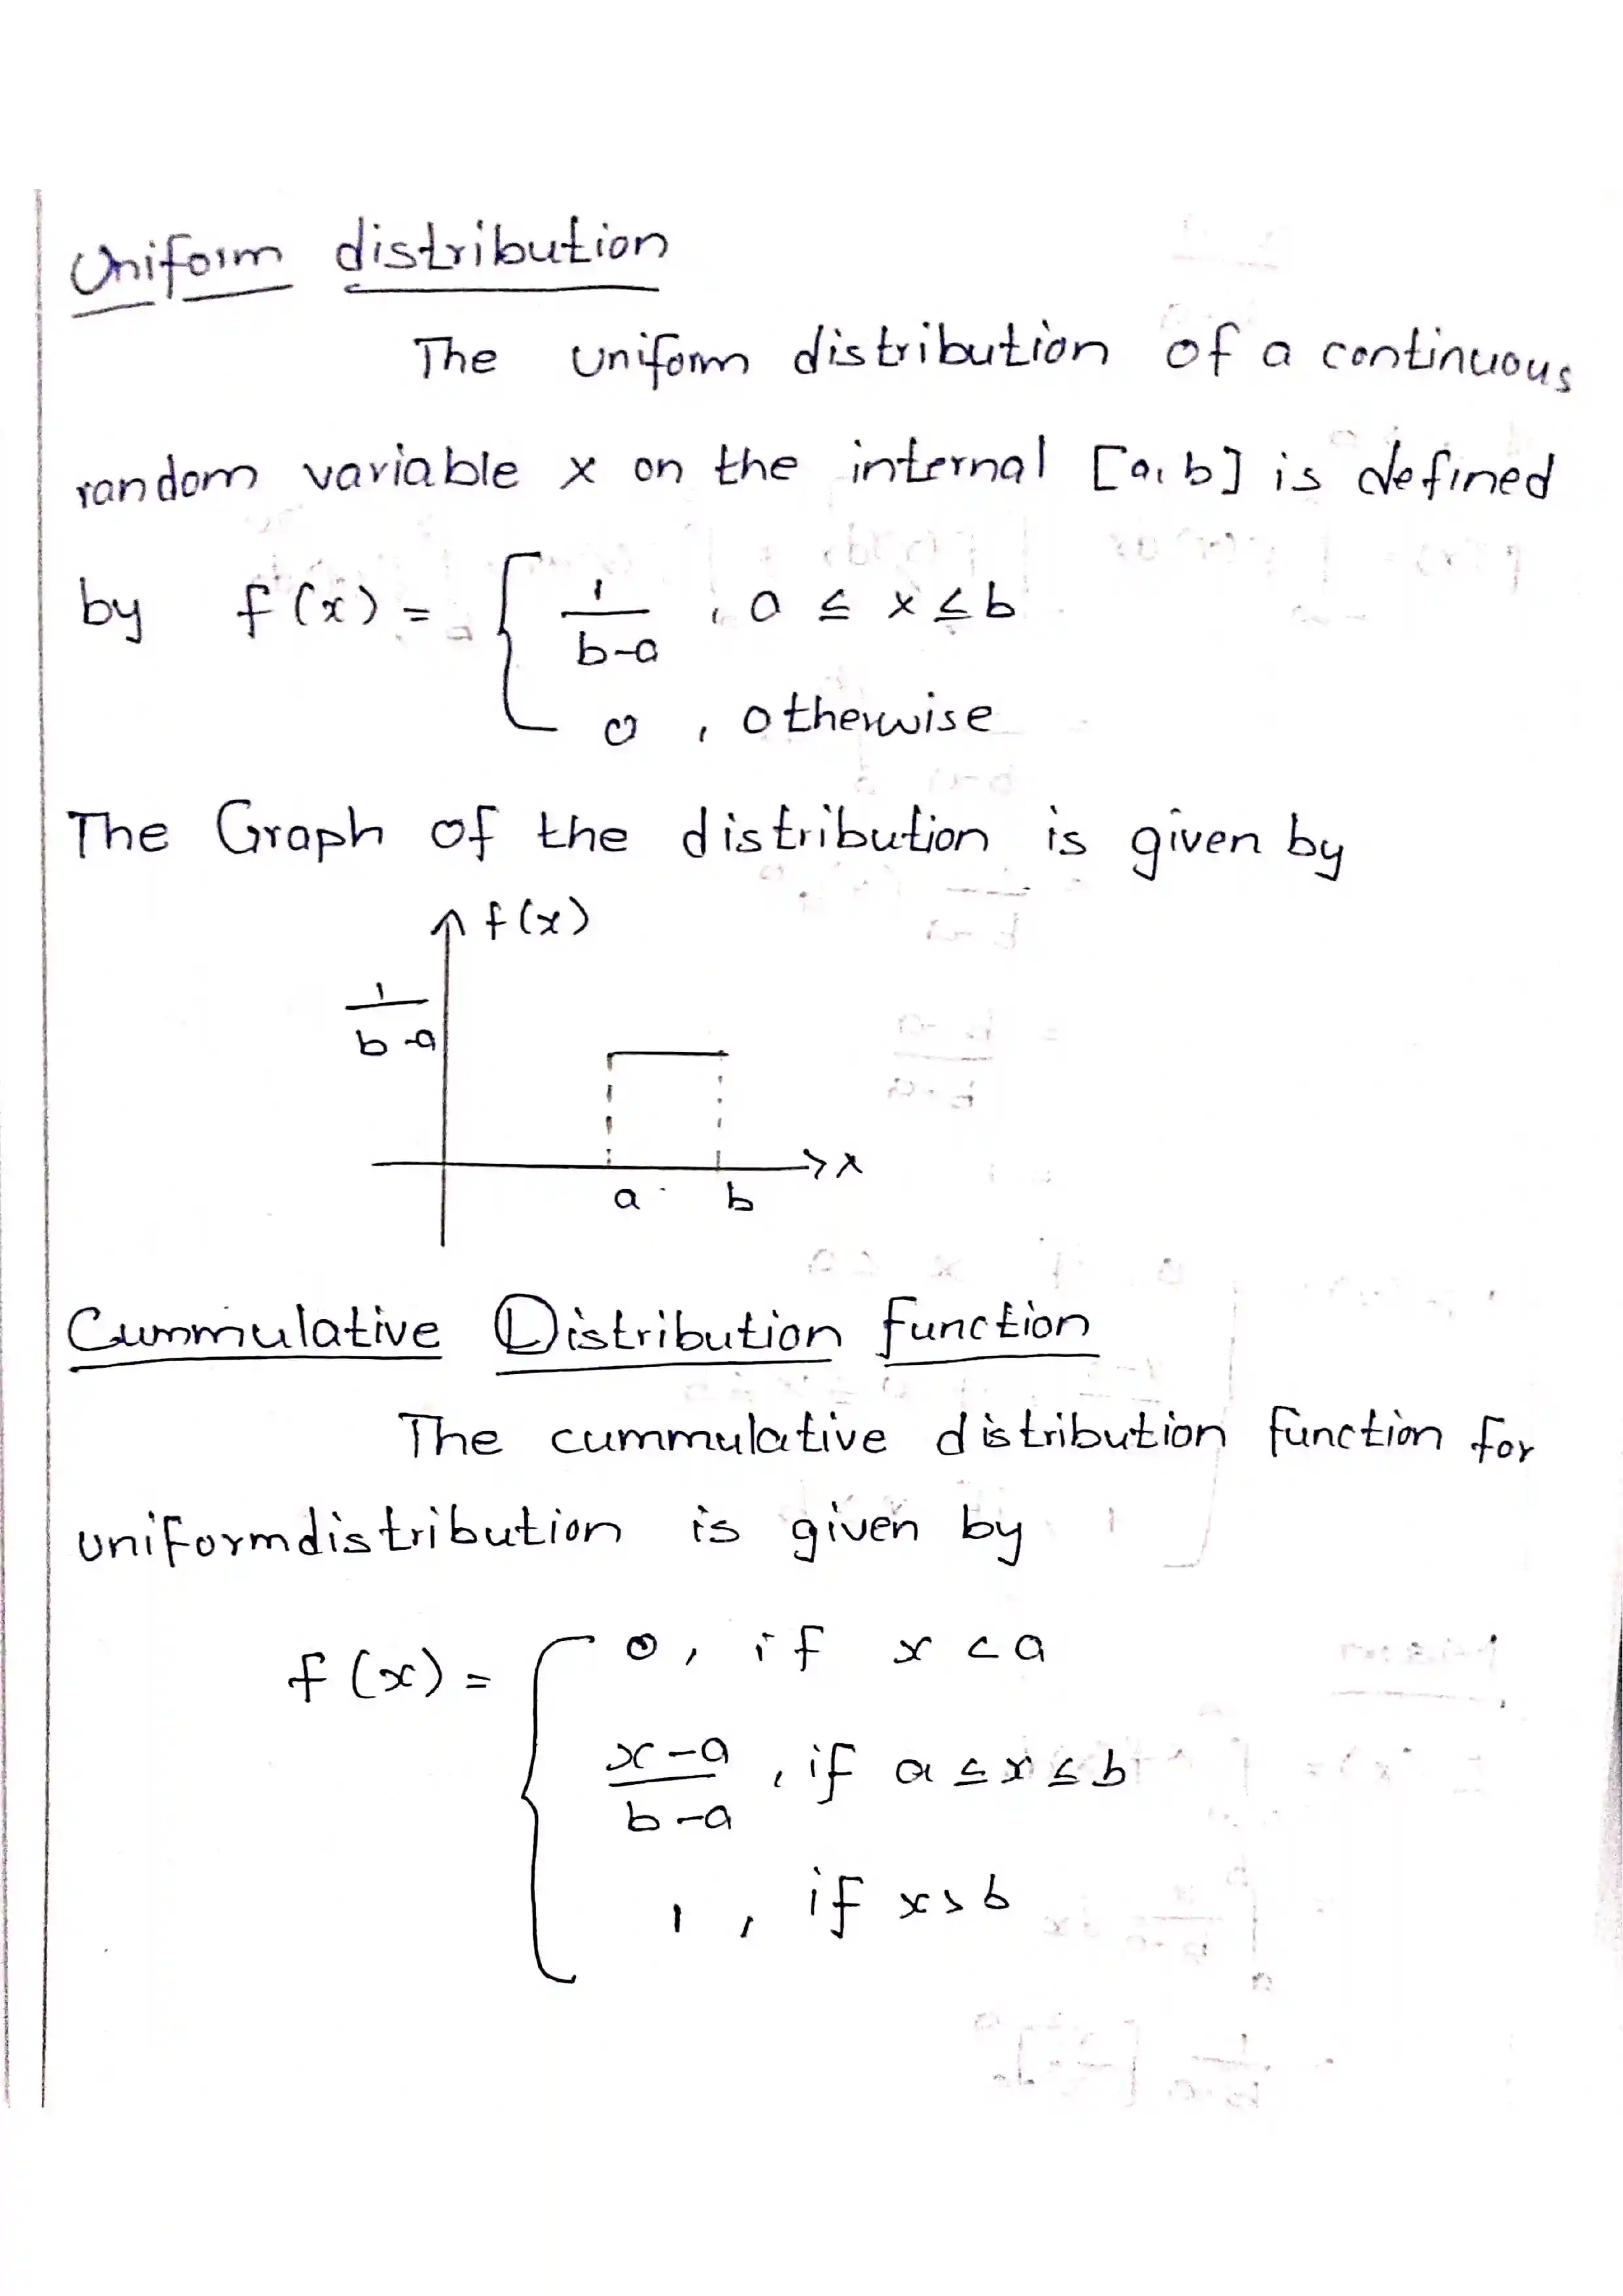 Uniform distribution
The uniform distribution of a continuous
random variable x on the internal [a, b] is defined
by f(x) = { 1/b-a , a ≤ x ≤ b
0 , otherwise
The Graph of the distribution is given by
f(x)
1/b-a
x
a b
Cummulative Distribution function
The cummulative distribution function for
uniformdistribution is given by
f(x) = { 0, if x < a
x-a/b-a , if a ≤ x ≤ b
1 , if x > b